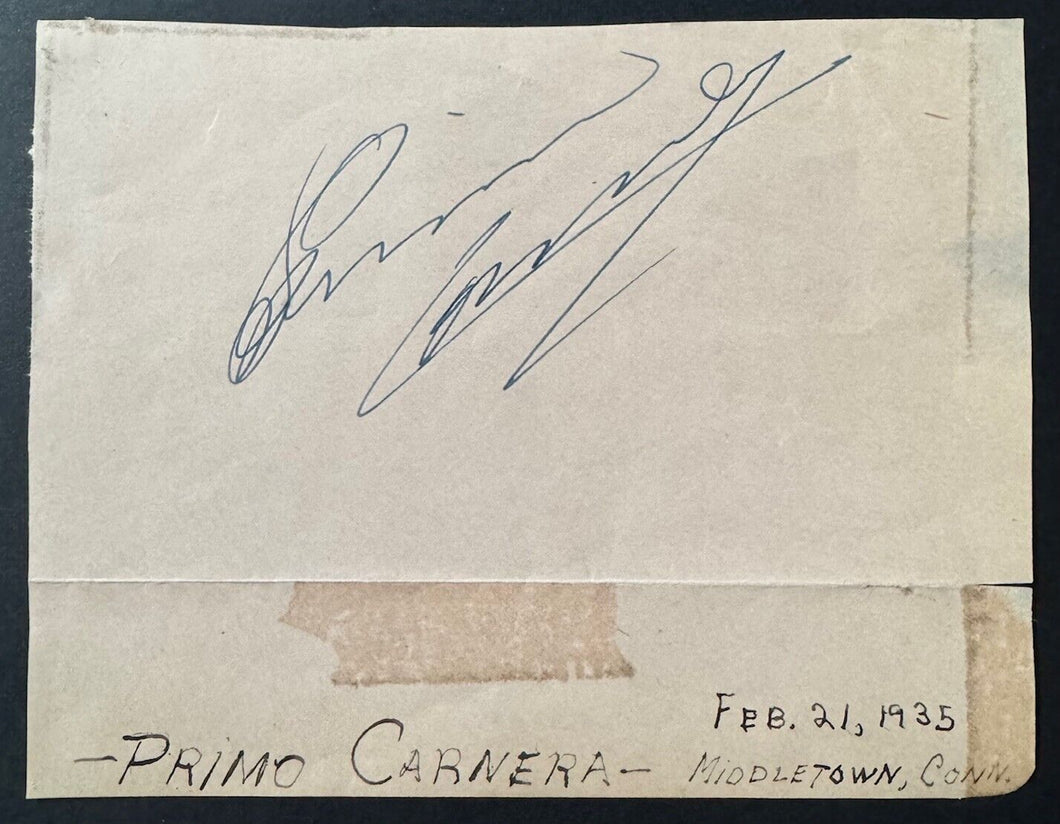 Primo Carnera
FEB. 21, 1935
—PRIMO CARNERA— MIDDLETOWN, CONN.